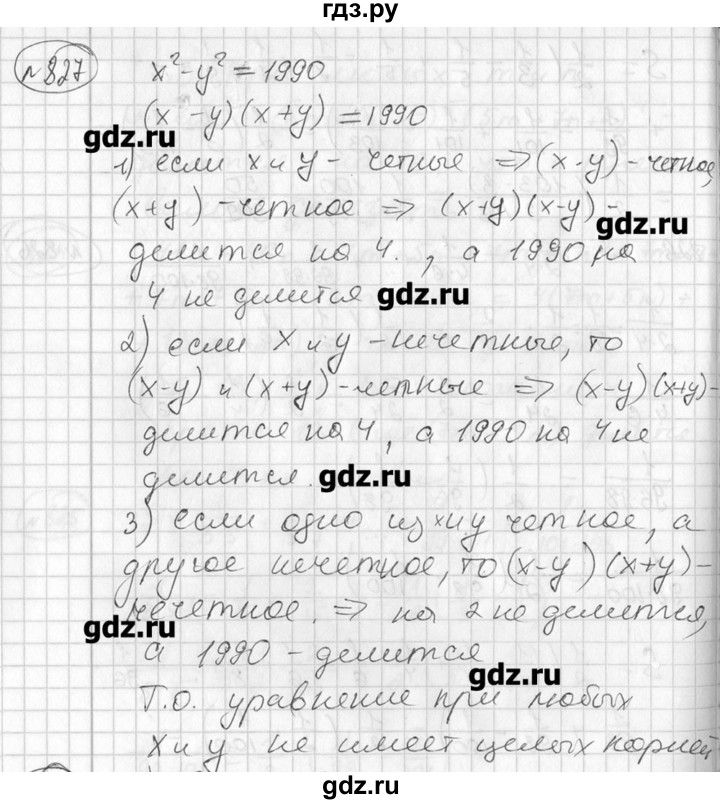 гдз.ру
№827
x² - y² = 1990
(x - y)(x + y) = 1990
gdz.ru
1) если x и y - четные ⇒ (x - y) - четное,
(x+y) - четное ⇒ (x+y)(x-y) -
gdz.ru
делится на 4. , а 1990 на
4 не делится
gdz.ru
2) если x и y - нечетные, то
(x-y) и (x+y) - четные ⇒ (x-y)(x+y) -
делится на 4, а 1990 на 4 не
делится.
gdz.ru
3) если одно из x и y четное, а
другое нечетное, то (x-y)(x+y) -
нечетное. ⇒ на 2 не делится,
gdz.ru
а 1990 - делится
gdz.ru
Т.о. уравнение при любых
x и y не имеет целых корней
gdz.ru